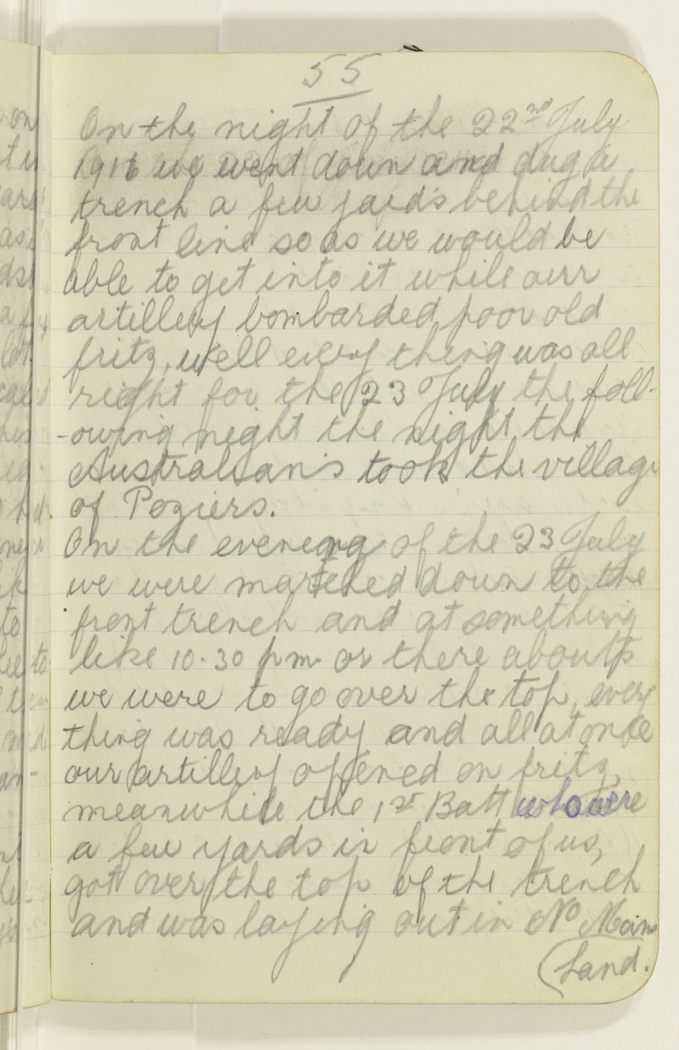 55
On the night of the 22nd July
1916 we went down and dug a
trench a few yards behind the
front line so as we would be
able to get into it while our
artillery bombarded poor old
fritz, well every thing was all
right for the 23 July the foll-
-owing night the night the
Australian's took the village
of Poziers.
On the evening of the 23 July
we were marched down to the
front trench and at something
like 10.30 pm or there abouts
we were to go over the top, every
thing was ready and all at once
our artillery opened on fritz,
meanwhile the 1st Batt who were
a few yards in front of us,
got over the top of the trench
and was laying out in No Man
Land.